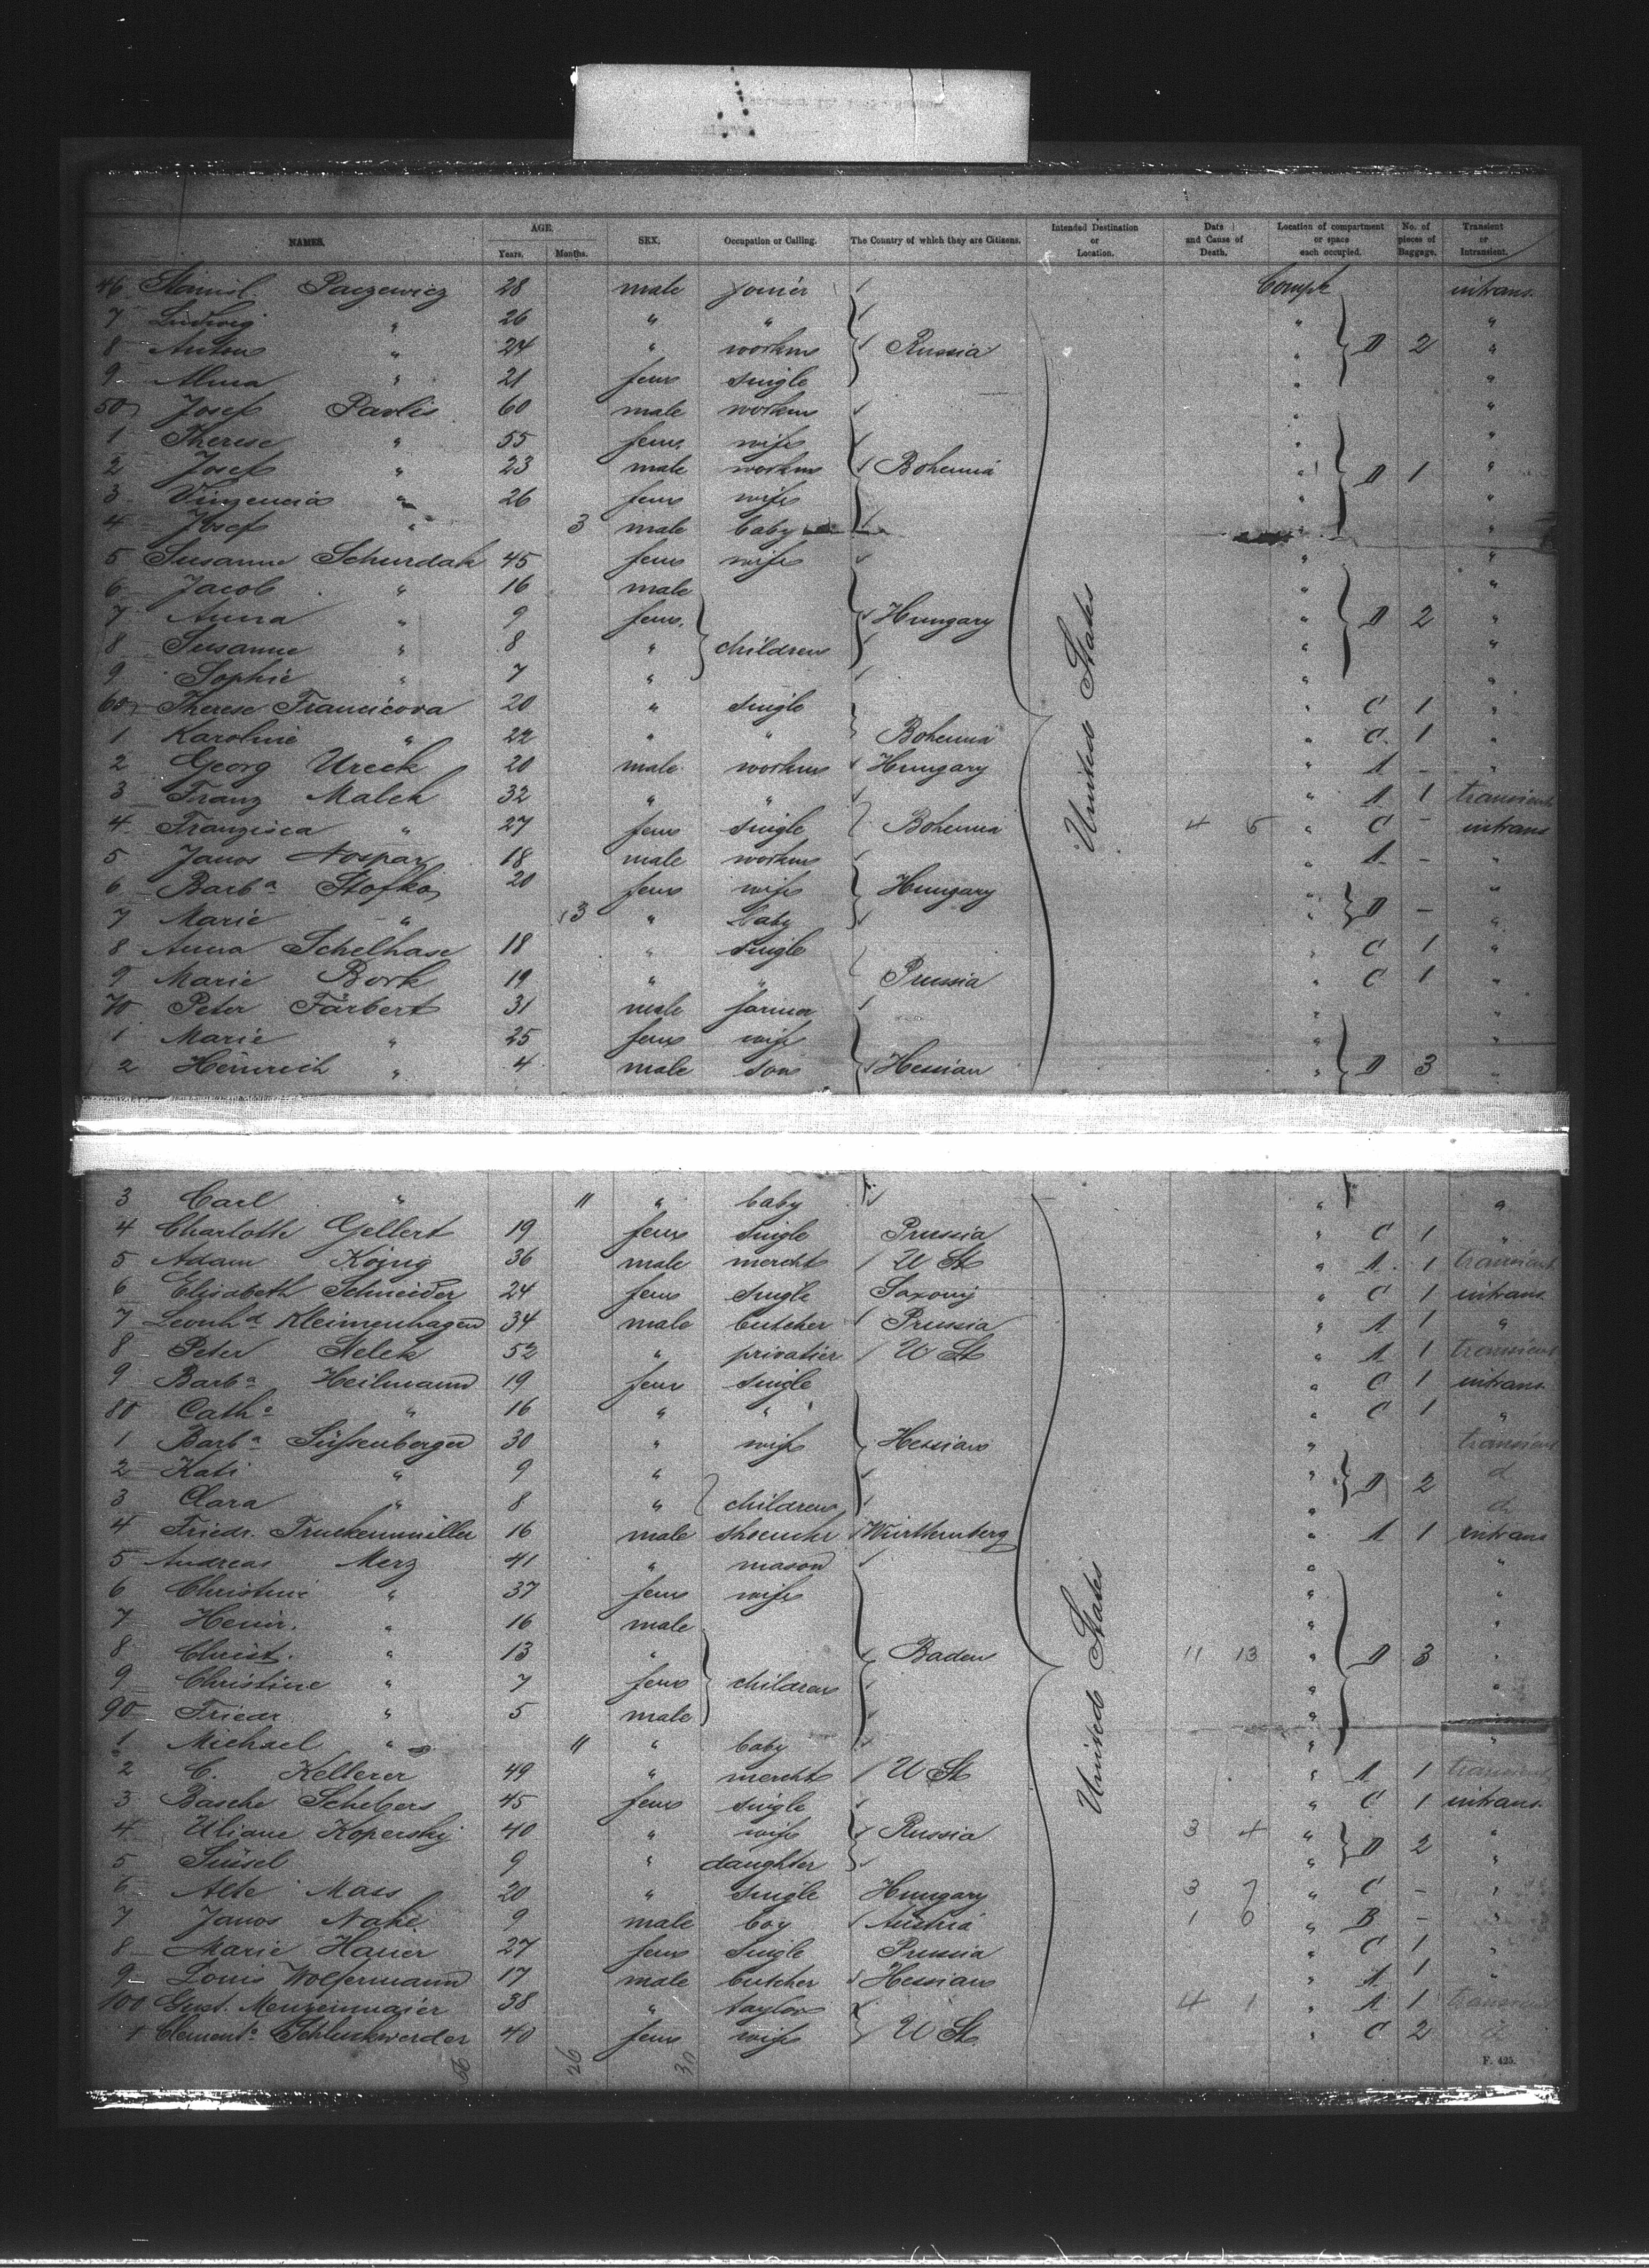 NAMES. AGE. Years. Months. SEX. Occupation or Calling. The Country of which they are Citizens. Intended Destination or Location. Date and Cause of Death. Location of compartment or space each occupied. No. of pieces of Baggage. Transient or Intransient.
46 Paczewicz 28 male joiner Compt intrans.
7 Ludwig " 26 " " " "
8 Anton " 24 " workm Russia " D 2 "
9 Alma " 21 fem single " "
50 Josef Pavlis 60 male workm " "
1 Therese " 55 fem. wife " "
2 Josef " 23 male workm Bohemia " D 1 "
3 Vinzencia " 26 fem wife " "
4 Josef " 3 male baby "
5 Susanne Schurdak 45 fem wife " "
6 Jacob " 16 male " "
7 Anna " 9 fem. Hungary " D 2 "
8 Susanne " 8 " children " "
9 Sophie " 7 " " "
60 Therese Francicova 20 " single " C 1 "
1 Karoline " 22 " " Bohemia " C 1 "
2 Georg Ureck 20 male workm Hungary " A - "
3 Franz Malek 32 " " " A 1 transient
4 Franzisca " 27 fem single Bohemia 4 5 " C - intrans
5 Janos Nospar 18 male workm " A - "
6 Barba Stofko 20 fem wife Hungary " "
7 Marie " 3 " baby " D - "
8 Anna Schelhase 18 " single " C 1 "
9 Marie Bork 19 " " Prussia " C 1 "
70 Peter Färbert 31 male farmer " "
1 Marie " 25 fem wife " "
2 Heinrich " 4 male son Hessian " D 3 "
United States
3 Carl " 11 " baby " "
4 Charlotte Gellert 19 fem single Prussia " C 1 "
5 Adam König 36 male mercht U St " A 1 transient
6 Elisabeth Schneider 24 fem single Saxony " C 1 intrans
7 Leonhd Kleimenhagen 34 male butcher Prussia " A 1 "
8 Peter Stelek 52 " privatier U St " A 1 transient
9 Barba Heilmann 19 fem single " C 1 intrans
80 Catha " 16 " " " C 1 "
1 Barba Süssenberger 30 " wife Hessian " transient
2 Kati " 9 " " D 2 d
3 Clara " 8 " children " d
4 Friedr. Truckenmüller 16 male shoemkr Württemberg " A 1 intrans
5 Andreas Merz 41 " mason " "
6 Christine " 37 fem wife " "
7 Heinr. " 16 male " "
8 Christ. " 13 " Baden 11 13 " D 3 "
9 Christine " 7 fem children " "
90 Friedr. " 5 male "
1 Michael " 11 " baby " "
2 C. Kellerer 49 " mercht U St " A 1 transient
3 Basche Schebers 45 fem single " C 1 intrans.
4 Uliane Kopersky 40 " wife Russia 3 4 " D 2 "
5 Süssel 9 " daughter " "
6 Alte Mass 20 " single Hungary 3 7 " C - "
7 Janos Nahe 9 male boy Austria 1 0 " B - "
8 Marie Hauer 27 fem single Prussia " C 1 "
9 Louis Wolfermann 17 male butcher Hessian " A 1 "
100 Gust. Menzenmaier 38 " taylor 4 1 " A 1 transient
1 Clementa Schluckwerder 40 fem wife U St " C 2 d
United States
26 30
F. 425.